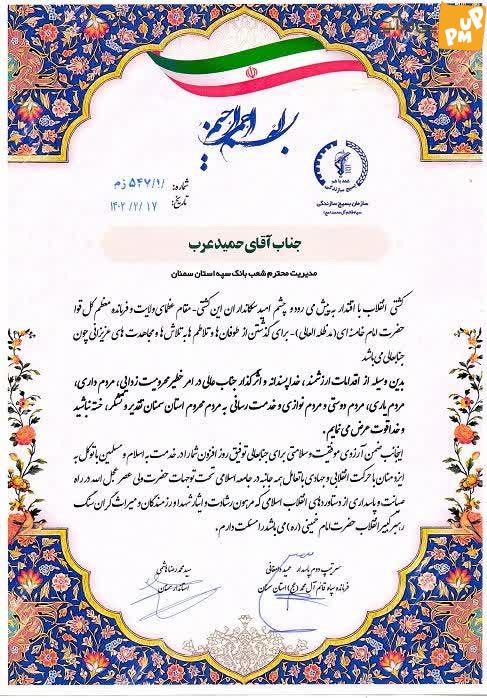 UP
PM
بسم الله الرحمن الرحیم
همه با هم
بسیج سازندگی
سازمان بسیج سازندگی
سپاه قائم آل محمد (عج)
شماره: ۵۴۷/۱/ زم
تاریخ: ۱۴۰۲/۲/۱۷
جناب آقای حمید عرب
مدیریت محترم شعب بانک سپه استان سمنان
کشتی انقلاب با اقتدار به پیش می رود و چشم امید سکانداران این کشتی- مقام عظمای ولایت و فرمانده معظم کل قوا
حضرت امام خامنه ای (مدظله العالی)- برای گذشتن از طوفان ها و تلاطم ها به تلاش ها و مجاهدت های عزیزانی چون
جنابعالی می باشد
بدین وسیله از اقدامات ارزشمند، خداپسندانه و اثرگذار جناب عالی در امر خطیر محرومیت زدایی، مردم داری،
مردم یاری، مردم دوستی و مردم نوازی و خدمت رسانی به مردم محروم استان سمنان تقدیر و تشکر، خسته نباشید
و خدا قوت عرض می نمایم.
اینجانب ضمن آرزوی موفقیت و سلامتی برای جنابعالی توفیق روز افزون شما را در خدمت به اسلام و مسلمین با توکل به
ایزد منان با حرکت انقلابی و جهادی با تعامل همه جانبه در جامعه اسلامی تحت توجهات حضرت ولی عصر عجل الله در راه
صیانت و پاسداری از دستاوردهای انقلاب اسلامی که مرهون رشادت و ایثار شهدا و رزمندگان و میراث گران سنگ
رهبر کبیر انقلاب حضرت امام خمینی (ره) می باشد را مسئلت دارم.
سرتیپ دوم پاسدار حمید دامغانی
فرمانده سپاه قائم آل محمد (عج) استان سمنان
سید محمدرضا هاشمی
استاندار سمنان